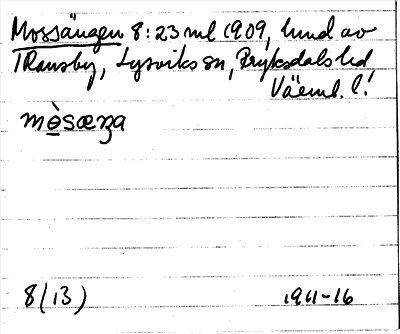 Mossängen 8:23 ml 1909, hmd av
Transby, Lysviks sn, Fryksdals hd
Värml. l!
mòsæŋa
8(13) 1911-16